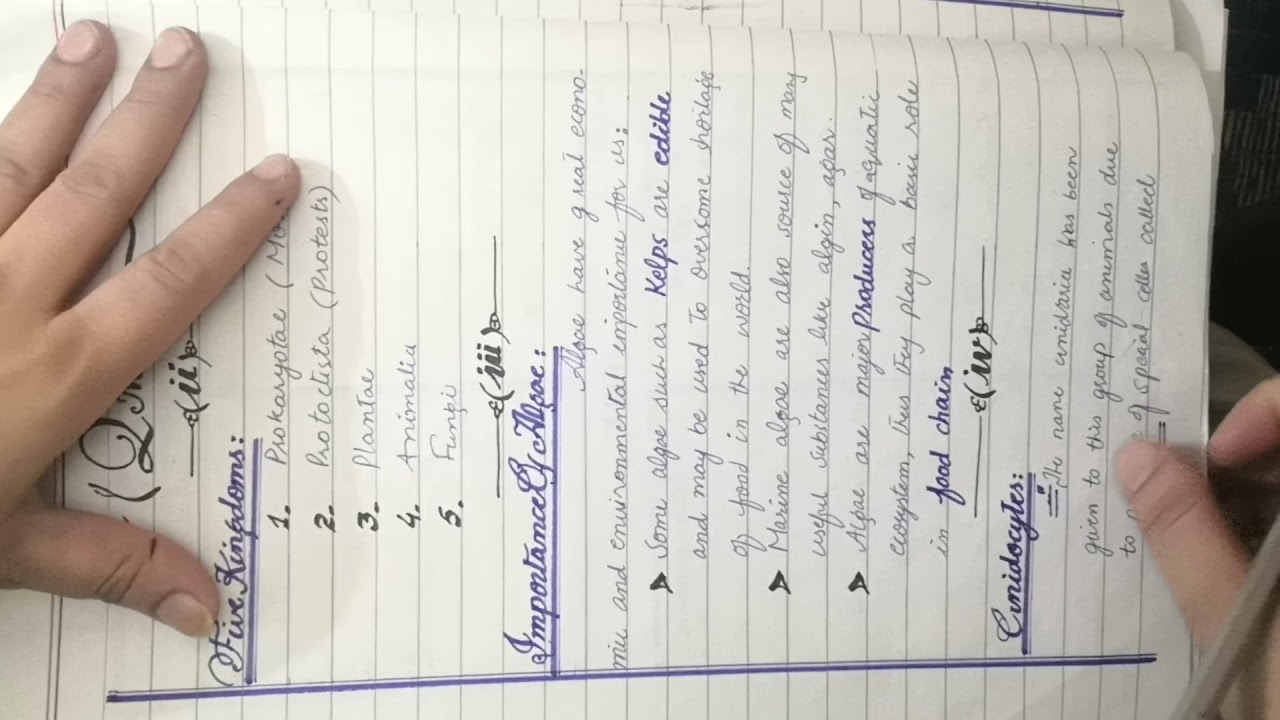 (Q.N
(ii)
Five Kingdoms:
1. Prokaryotae (Mo
2. Protoctista (Protests)
3. Plantae
4. Animalia
5. Fungi
(iii)
Importance Of Algae:
Algae have great econo-
mic and environmental importance for us:
➤ Some algae such as Kelps are edible
and may be used to overcome shortage
of food in the world.
➤ Marine algae are also source of many
useful substances like algin, agar.
➤ Algae are major Producers of aquatic
ecosystem, thus they play a basic role
in food chain
(iv)
Cnidocytes:
The name cnidaria has been
given to this group of animals due
to of special cells called